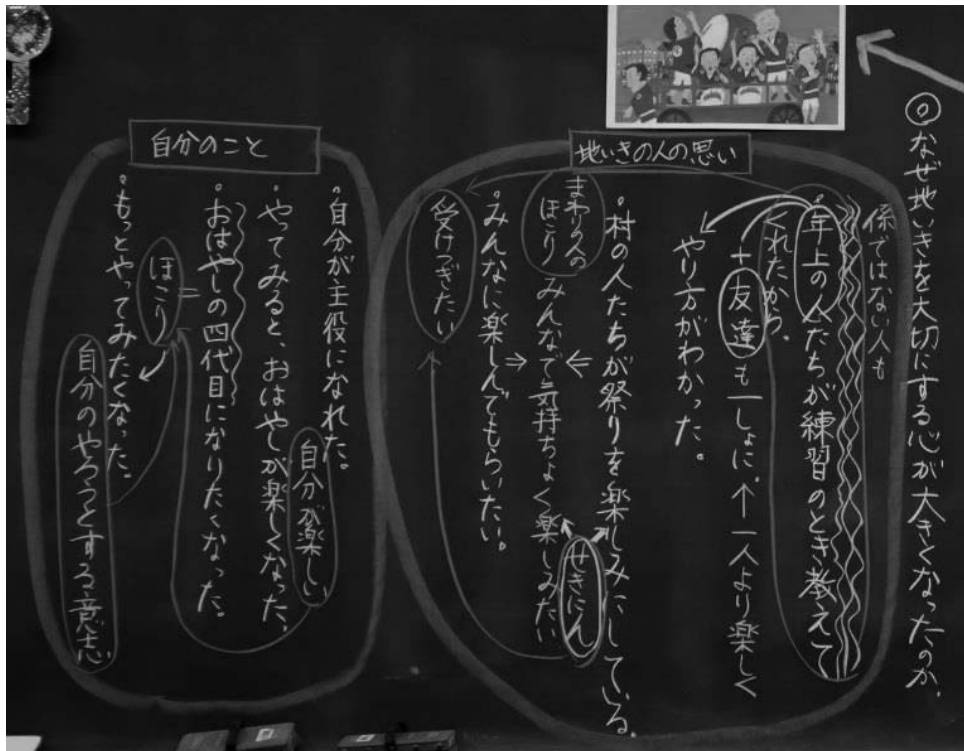 ◎なぜ地いきを大切にする心が大きくなったのか、
地いきの人の思い
係ではない人も
・年上の人たちが練習のとき教えて
くれたから。
+友達も一しょに。↑一人より楽しく
やり方がわかった。
・村の人たちが祭りを楽しみにしている。
せきにん
まわりの人の
ほこり
みんなで気持ちよく楽しみたい
・みんなに楽しんでもらいたい。
受けつぎたい
自分のこと
・自分が主役になれた。
自分が楽しい
・やってみると、おはやしが楽しくなった、
・おはやしの四代目になりたくなった。
=
ほこり
・もっとやってみたくなった。
自分のやろうとする意志